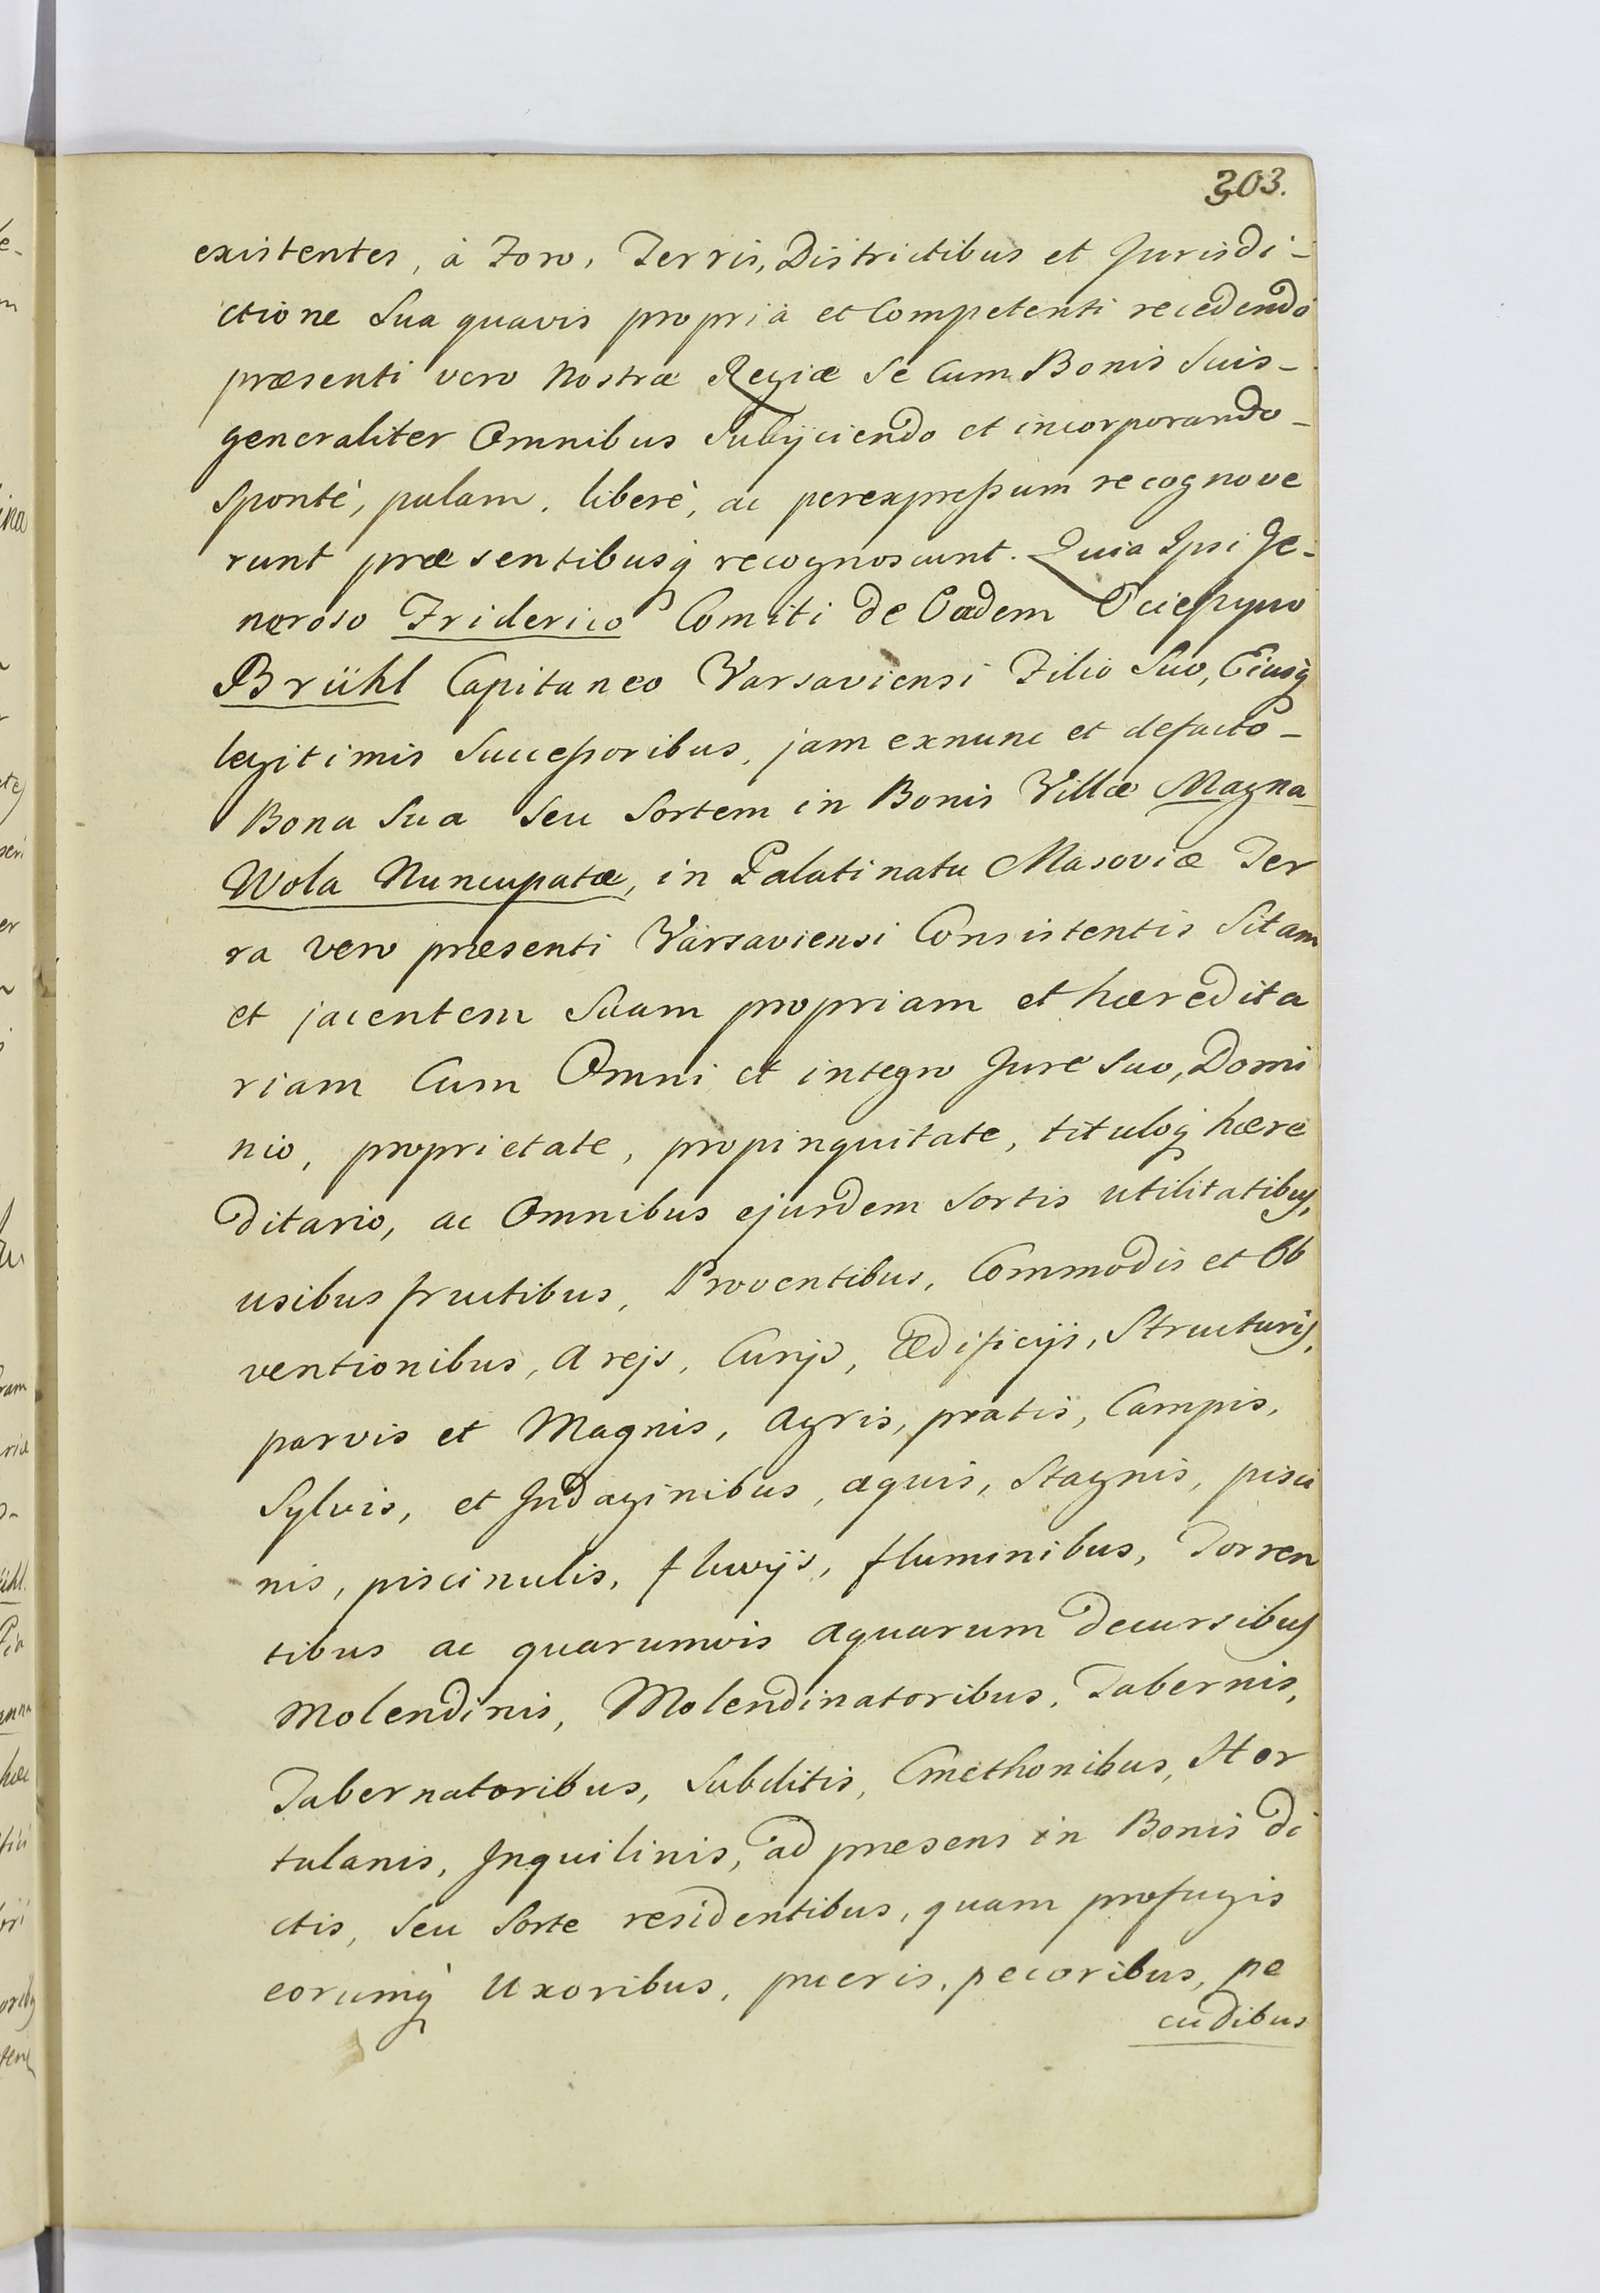 303.
existentes, à Foro, Terris, Districtibus et Jurisdi-
ctione Sua quavis propria et Competenti recedendo
præsenti vero Nostræ Regiæ Se Cum Bonis Suis-
generaliter Omnibus Subijciendo et incorporando-
Spontè, palam, liberè, ac perexpreßum recognove
runt præsentibusq recognoscunt. Quia Ipsi Ge-
neroso Friderico Comiti de Eadem Ocieszyno
Brühl Capitaneo Varsaviensi Filio Suo, Eiusq
legitimis Succeßoribus, jam exnunc et defacto-
Bona Sua Seu Sortem in Bonis Villæ Magna
Wola Nuncupatæ, in Palatinatu Masoviæ Ter
ra vero præsenti Varsaviensi Consistentis Sitam
et jacentem Suam propriam et hæredita
riam Cum Omni et integro Jure Suo, Domi
nio, proprietate, propinquitate, tituloq hære
ditario, ac Omnibus ejusdem Sortis utilitatibus,
usibus fructibus, Proventibus, Commodis et Ob
ventionibus, Arejs, Curijs, Ædificijs, Structuris,
parvis et Magnis, Agris, pratis, Campis,
Sylvis, et Indaginibus, aquis, Stagnis, pisci
nis, piscinulis, fluvijs, fluminibus, Torren
tibus ac quarumvis Aquarum Decursibus
Molendinis, Molendinatoribus, Tabernis,
Tabernatoribus, Subditis, Cmethonibus, Hor
tulanis, Inquilinis, ad præsens in Bonis di
ctis, Seu Sorte residentibus, quam profugis
eorumq Uxoribus, pueris, pecoribus, pe
cudibus